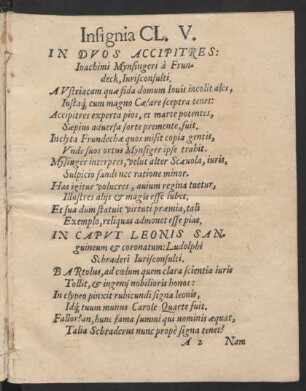 Insignia CL. V.
IN DVOS ACCIPITRES:
Ioachimi Mynsingeri à Frun-
deck, Iurisconsulti.
AVstriacam quæ fida domum Iouis incolit ales,
Iustaq́; cum magno Cæsare sceptra tenet:
Accipitres experta pios, et marte potentes,
Sæpius aduersa sorte premente, fuit.
Inclyta Frundechæ quos misit copia gentis,
Vnde suos ortus Mynsiger ipse trahit.
Mysinger interpres, velut alter Scæuola, iuris,
Sulpicio sandi nec ratione minor.
Has igitur volucres, auium regina tuetur,
Illustres alijs & magis esse iubet.
Et sua dum statuit virtuti præmia, tali
Exemplo, reliquos admonet esse pias,
IN CAPVT LEONIS SAN-
guineum & coronatum: Ludolphi
Schraderi Iurisconsulti.
BARtolus, ad cœlum quem clara scientia iuris
Tollit, & ingenij nobilioris honos:
In clypeo pinxit rubicundi signa leonis,
Idq́; tuum munus Carole Quarte fuit.
Fallor? an, hunc fama summi qui nominis æquat,
Talia Schraderus nunc propè signa tenet?
A 2 Nam